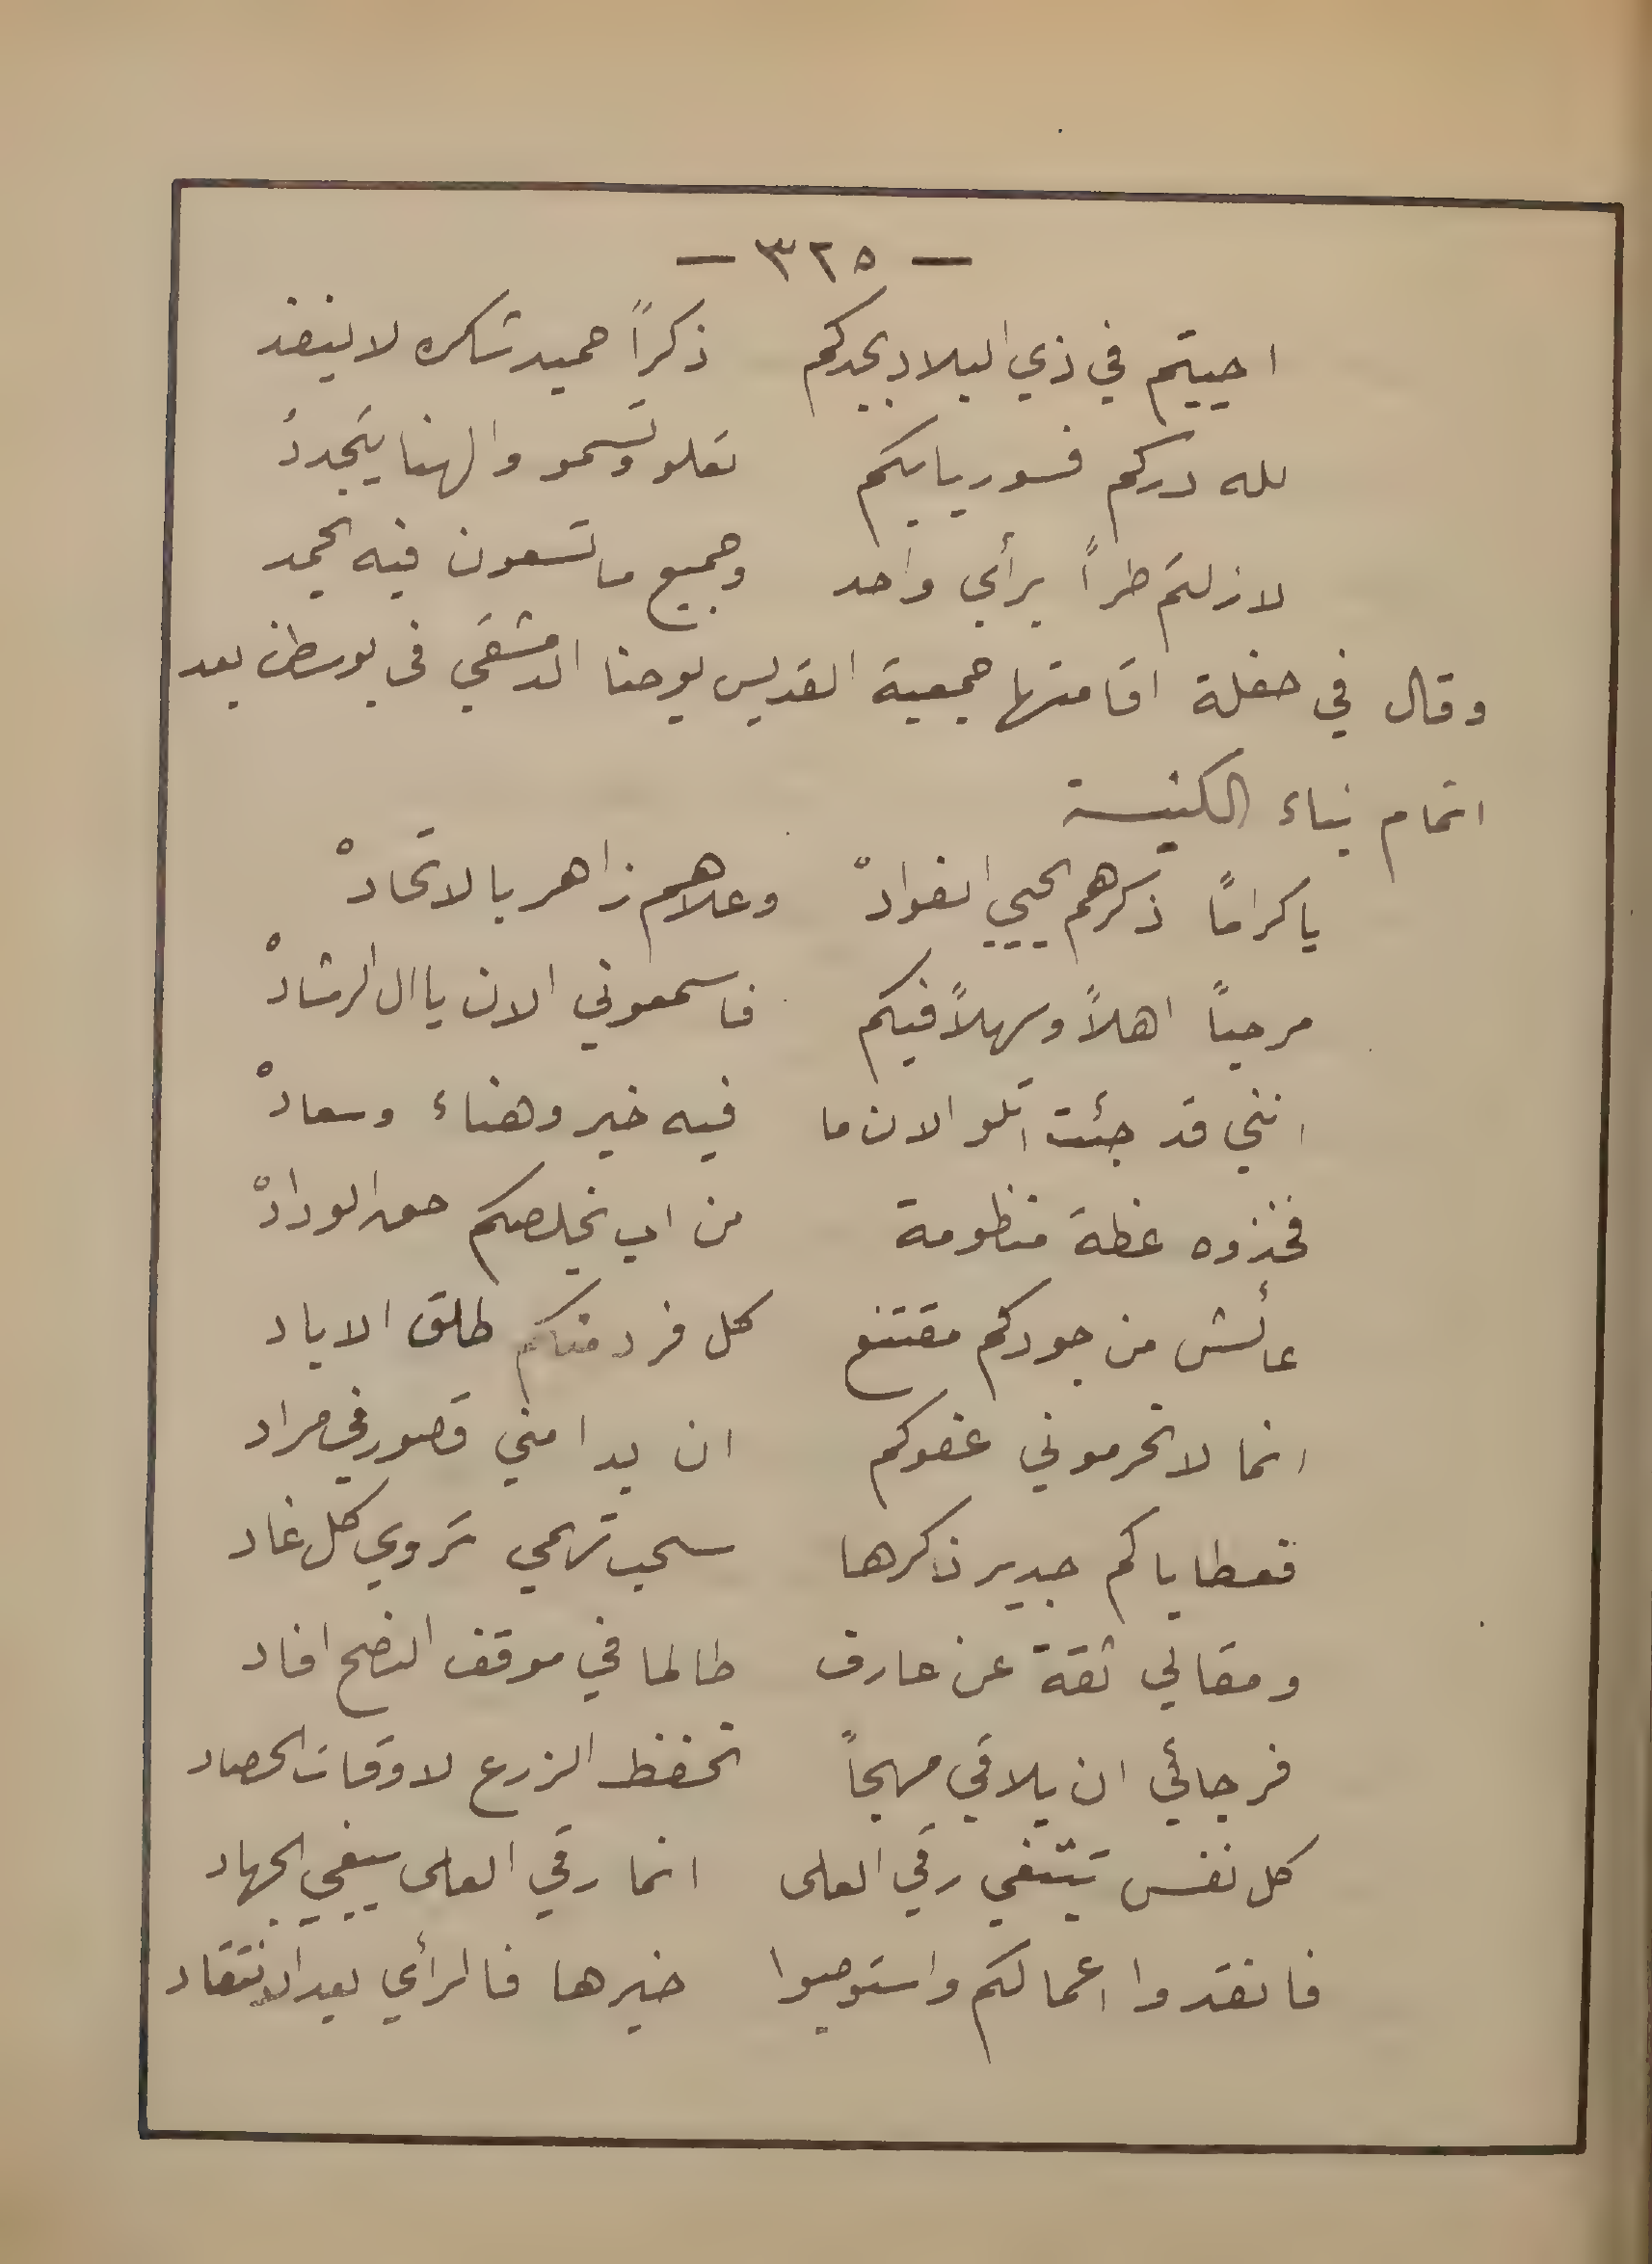 — ٣٢٥ —
احييتم في ذي البلاد بجدكم ذكراً حميد شكره لا ينفد
لله دركم فسوريا بكم تعلو وتسمو والهنا يتجددُ
لازلتم طراً برأي واحد وجميع ما تسعون فيه يحمد
وقال في حفلة اقامتها جمعية القديس يوحنا الدمشقي في بوسطن بعد
اتمام بناء الكنيسة
يا كراماً ذكرهم يحيي الفوادْ وعلاهم زاهر بالاتحادْ
مرحباً اهلاً وسهلاً فيكم فاسمعوني الان يا ال الرشادْ
انني قد جئت اتلو الان ما فيه خير وهناء وسعادْ
فخذوه عظة منظومة من اب يخلصكم حق الودادْ
عائش من جودكم مقتنع كل فرد منكم طلق الاياد
انما لا تحرموني عفوكم ان بدا مني قصور في مراد
فعطاياكم جدير ذكرها سحب تهمي تروي كل غاد
ومقالي ثقة عن عارف طالما في موقف النصح افاد
فرجائي ان يلاقي مهجاً تحفظ الزرع لاوقات الحصاد
كل نفس تبتغي رقي العلى انما رقي العلى يبغي الجهاد
فانقدوا اعمالكم واستوجبوا خيرها فالرأي بعد الانتقاد